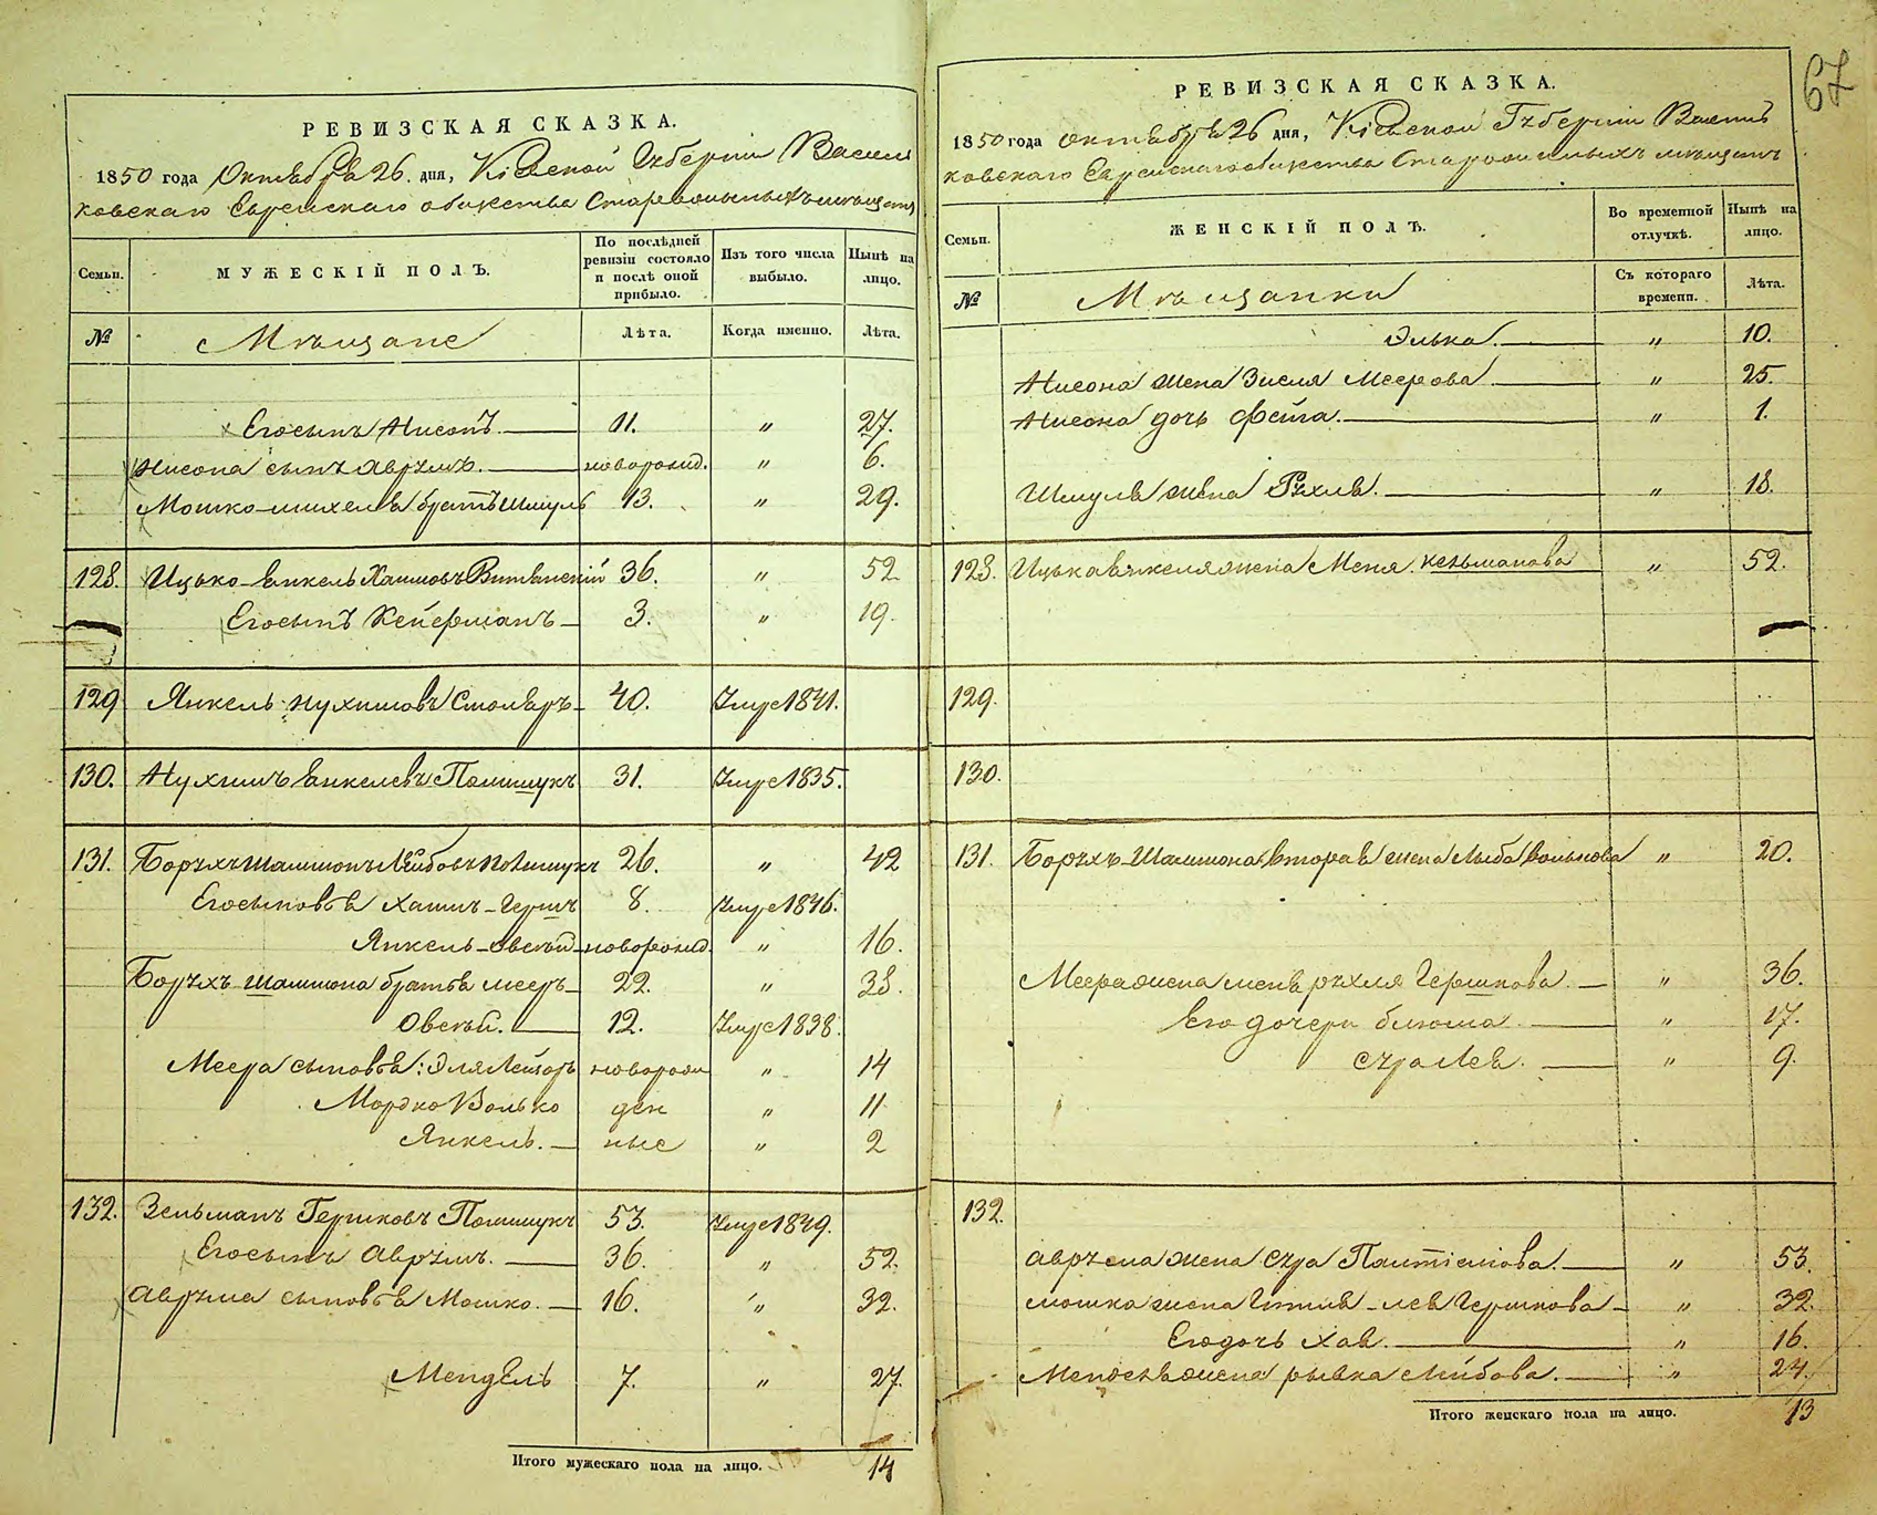 67
РЕВИЗСКАЯ СКАЗКА.
1850 года Октября 26. дня, Кіевской Губерніи Василь
ковскаго Еврейскаго общества Старозаписныхъ мѣщанъ
Семьи. МУЖЕСКІЙ ПОЛЪ. По послѣдней ревизіи состояло и послѣ оной прибыло. Изъ того числа выбыло. Нынѣ на лицо.
№ Мѣщане Лѣта. Когда именно. Лѣта.
Его сынъ Нисонъ. 11. " 27.
Нисона сынъ Аврумъ. новорожд. " 6.
Мошко-Михеля братъ Шмуль 13. " 29.
128. Ицько-Янкель Хаимовъ 36. " 52.
Его сынъ Кейферманъ 3. " 19.
129 Янкель Нухимовъ Столяръ 40. Умре 1841.
130. Нухимъ Янкелевъ Полищукъ 31. Умре 1835.
131. Борухъ Шамшонъ Лейбовъ Полищукъ 26. " 42
Его сыновья Хаимъ-Гершъ 8. Умре 1846.
Янкель-Овсей новорожд. " 16.
Борухъ Шамшона братья Мееръ 22. " 38.
Овсей. 12. Умре 1838.
Меера сыновья: Эля Лейзоръ новорож " 14
Мордко Волько ден " 11
Янкель. ные " 2
132. Зельманъ Гершковъ Полищукъ 53. Умре 1849.
Его сынъ Аврумъ. 36. " 52.
Аврума сыновья Мошко. 16. " 32.
Мендель 7. " 27.
Итого мужескаго пола на лицо. 14
РЕВИЗСКАЯ СКАЗКА.
1850 года Октября 26 дня, Кіевской Губерніи Василь
ковскаго Еврейскаго общества Старозаписныхъ мѣщанъ
Семьи. ЖЕНСКІЙ ПОЛЪ. Во временной отлучкѣ. Нынѣ на лицо.
№ Мѣщанки Съ котораго времени. Лѣта.
Элька. " 10.
Нисона жена Зисля Меерова " 25.
Нисона дочь Фейга. " 1.
Шмуля жена Рухля. " 18.
128. Ицька Янкеля жена Меня " 52.
129.
130.
131. Борухъ-Шамшона вторая жена Лыба Волькова " 20.
Меера жена Меня Рухля Гершкова. " 36.
Его дочери Блюма. " 17.
Сура Лея. " 9.
132.
Аврума жена Сура " 53.
Мошка жена Гитля-Лея Гершкова " 32.
Его дочь Хая. " 16.
Менделя жена Рывка Лейбова. " 24.
Итого женскаго пола на лицо. 13